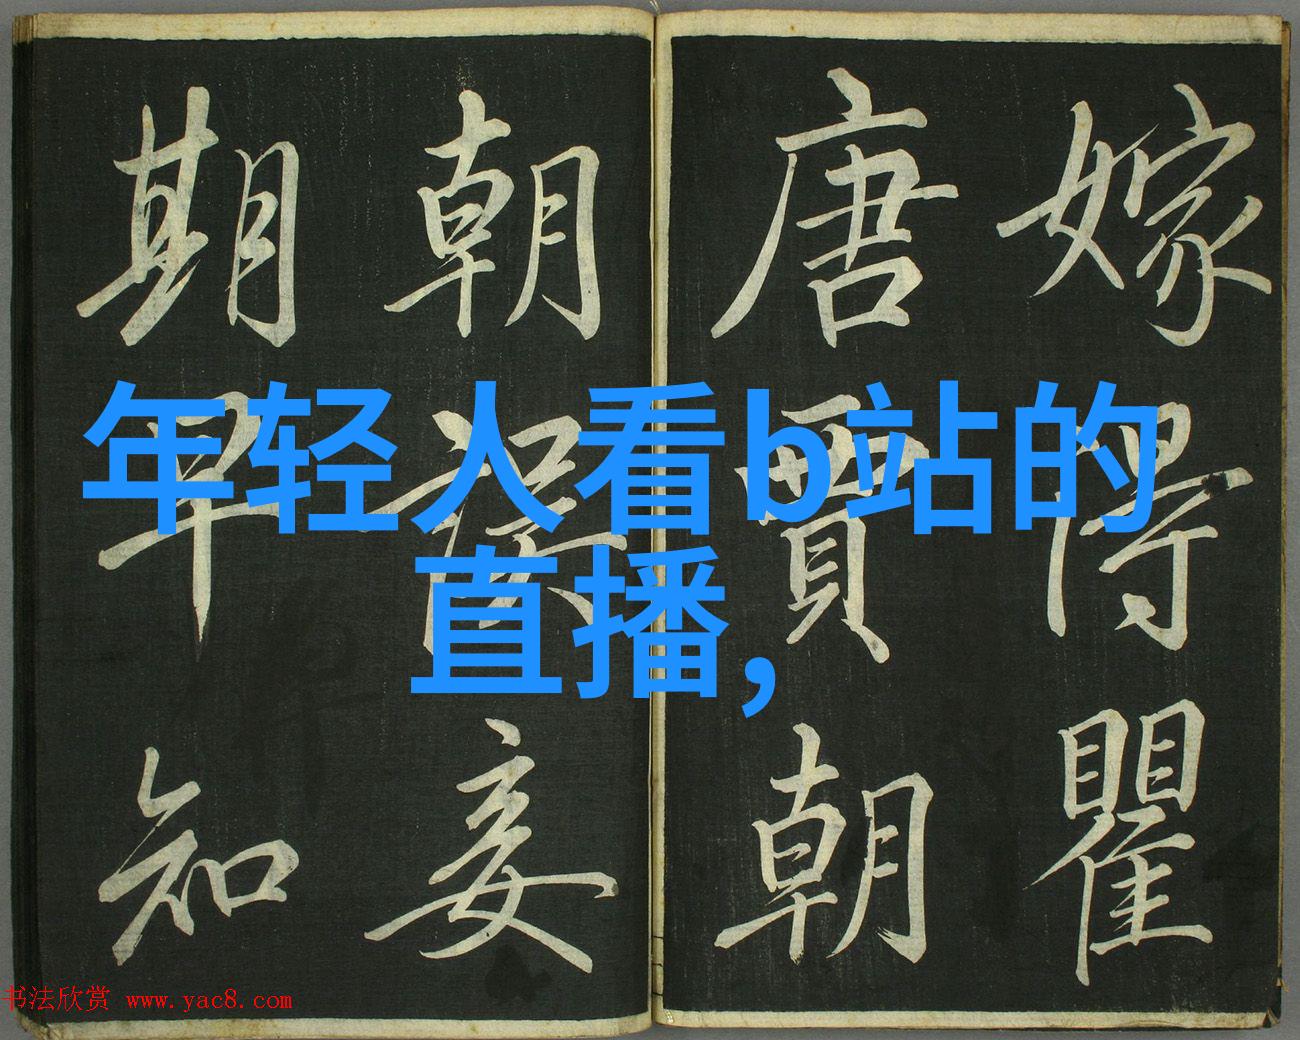 嫁得瞿
唐賈朝
朝誤妾
期早知
年轻人看b站的
直播,
书法欣赏 www.yac8.com